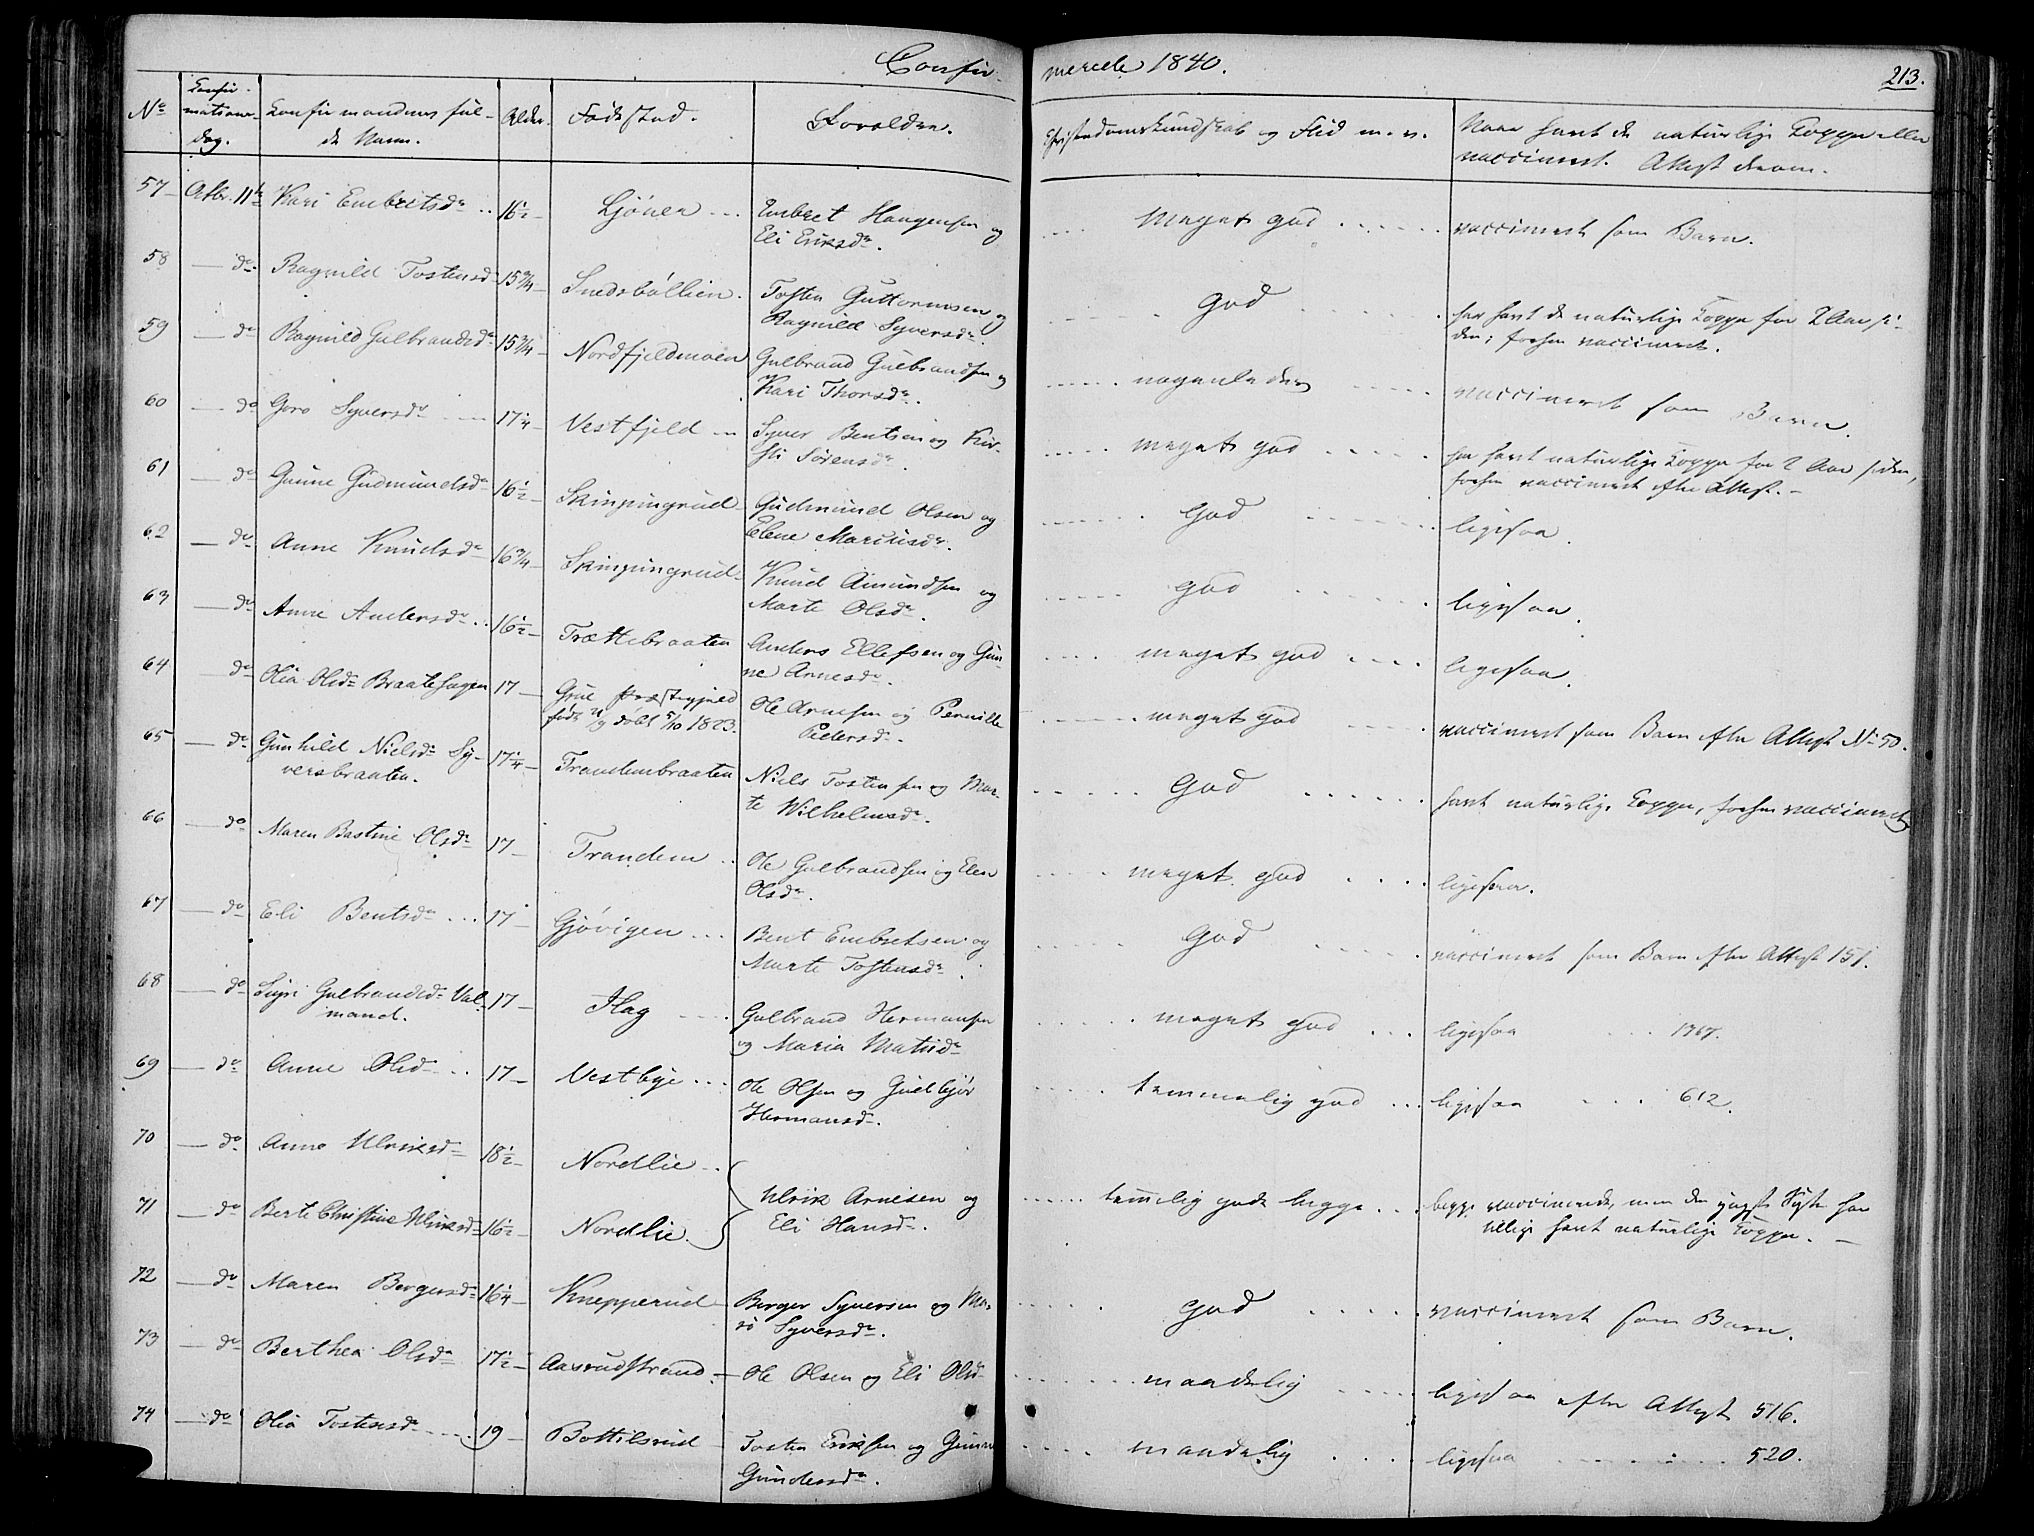 Confirmerede 1840.
213.
No Confirmations-dag. Confirmandens fulde Navn. Alder. Fødested. Forældre. Christendomskundskab og Flid m. v. Naar havt de naturlige Kopper eller vaccineret. Attest derom.
57 Octbr. 11te Kari Embretsdr 16½ Ljöner Embret Haagensen og Eli Eriksdr. meget god vaccineret som Barn.
58 do Ragnild Tostensdr 15¾ Snedsböllien Tosten Guttormsen og Ragnild Syversdr. god har havt de naturlige Kopper for 2 Aar siden; forhen vaccineret.
59 do Ragnild Gulbrandsdr 15¾ Nordfjeldmoen Gulbrand Gulbrandsen og Kari Thorsdr. nogenledes vaccineret som Barn.
60 do Goro Syversdr 17¼ Vestfjeld Syver Bentsen og Kirsti Sörensdr. meget god har havt naturlige Kopper for 2 Aar siden, forhen vaccineret efter Attest.
61 do Gunne Gudmundsdr 16½ Skinpungrud Gudmund Olsen og Elene Mariusdr. God ligesaa.
62 do Anne Knudsdr 16¾ Skinpungrud Knud Amundsen og Marte Olsdr. god ligesaa.
63 do Anne Andersdr 16½ Trættebraaten Anders Ellefsen og Gunne Arnesdr. meget god ligesaa.
64 do Olia Olsdr Braatehagen 17 Grue Præstegjeld født 21/9 döbt 5/10 1823. Ole Arnesen og Pernille Pedersdr. meget god vaccineret som Barn efter Attest No 50.
65 do Gunhild Nielsdr Syversbraaten. 17¼ Trandembraaten Niels Tostensen og Marte Wilhelmsdr. God havt naturlige Kopper, forhen vaccineret
66 do Maren Bastine Olsdr 17 Trandem Ole Gulbrandsen og Elen Olsdr. meget god ligesaa.
67 do Eli Bentsdr 17 Gjövigen Bent Embretsen og Marte Tostensdr. God vaccineret som Barn efter Attest 151.
68 do Sigri Gulbrandsdr Valmand. 17 Hag Gulbrand Hermansen og Maria Matsdr meget god ligesaa 1767.
69 do Anne Olsdr 17 Vestbye Ole Olsen og Gudbjör Hermansdr. temmelig god ligesaa 612.
70 do Anne Ulriksdr 18½ Nordlie
71 do Berte Christine Ulriksdr 16½ Nordlie. Ulrik Arnesen og Eli Hansdr. temmelig gode begge begge vaccinerede, men den yngste Syster har tillige havt naturlige Kopper.
72 do Maren Bergersdr 16¼ Knepperud Berger Syversen og Mari Syversdr. God vaccineret som Barn.
73 do Berthea Olsdr 17½ Aasrudstrand Ole Olsen og Eli Olsdr maadelig ligesaa efter Attest 516.
74 do Olia Tostensdr 19 Bottilsrud Tosten Eriksen og Gunne Gundersdr. maadelig ligesaa 520.